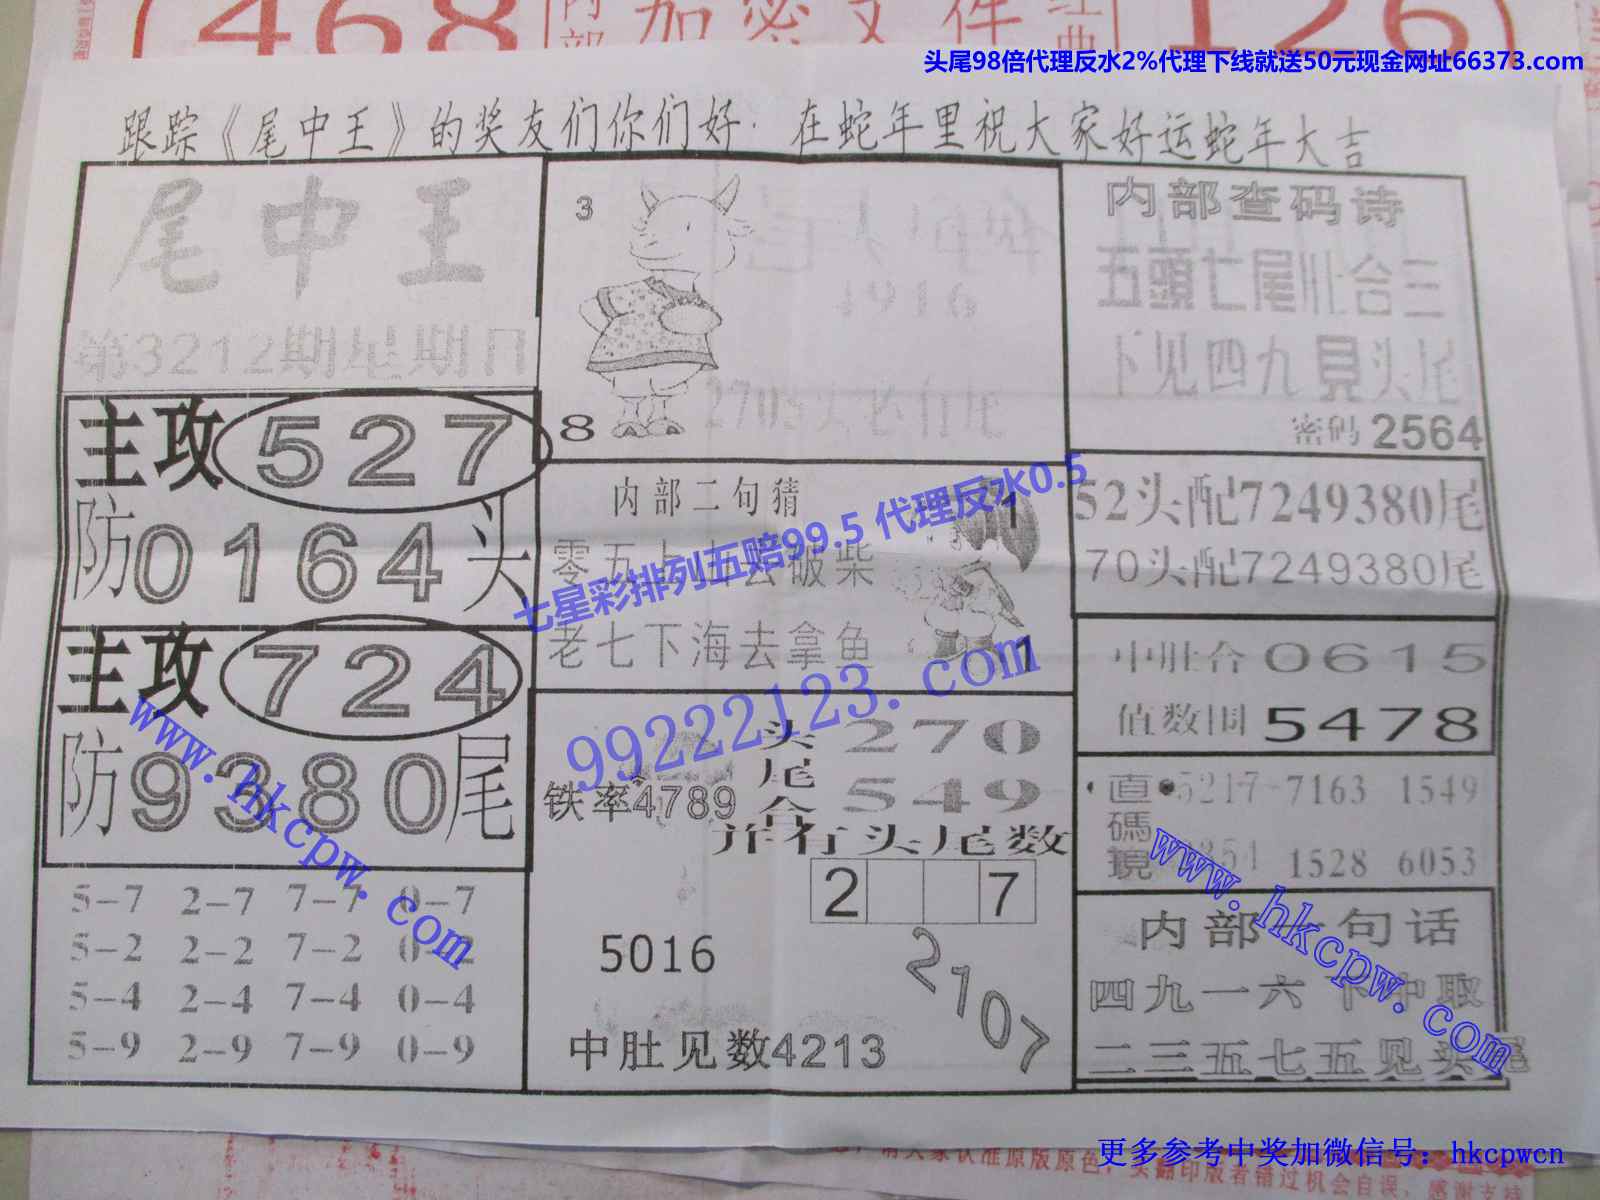 468 内部 加密文件 红曲 126
头尾98倍代理反水2%代理下线就送50元现金网址66373.com
跟踪《尾中王》的奖友们你们好：在蛇年里祝大家好运蛇年大吉
尾中王
第3212期星期日
主攻 527
防0164头
主攻 724
防9380尾
5–7 2–7 7–7 0–7
5–2 2–2 7–2 0–2
5–4 2–4 7–4 0–4
5–9 2–9 7–9 0–9
3
8
1916
2705头必有尾
内部二句猜
零五上山去破柴
老七下海去拿鱼
1
1
七星彩排列五赔99.5 代理反水0.5
99222123.com
头 270
尾 549
合
铁率4789
并有头尾数
2 7
5016
2107
中肚见数4213
内部查码诗
五頭七尾肚合三
下见四九見头尾
密码 2564
52头配7249380尾
70头配7249380尾
中肚合0615
值数围5478
直碼現
5217 7163 1549
1528 6053
内部 句话
四九一六下中取
二三五七五见头尾
www.hkcpw.com
www.hkcpw.com
更多参考中奖加微信号：hkcpwcn